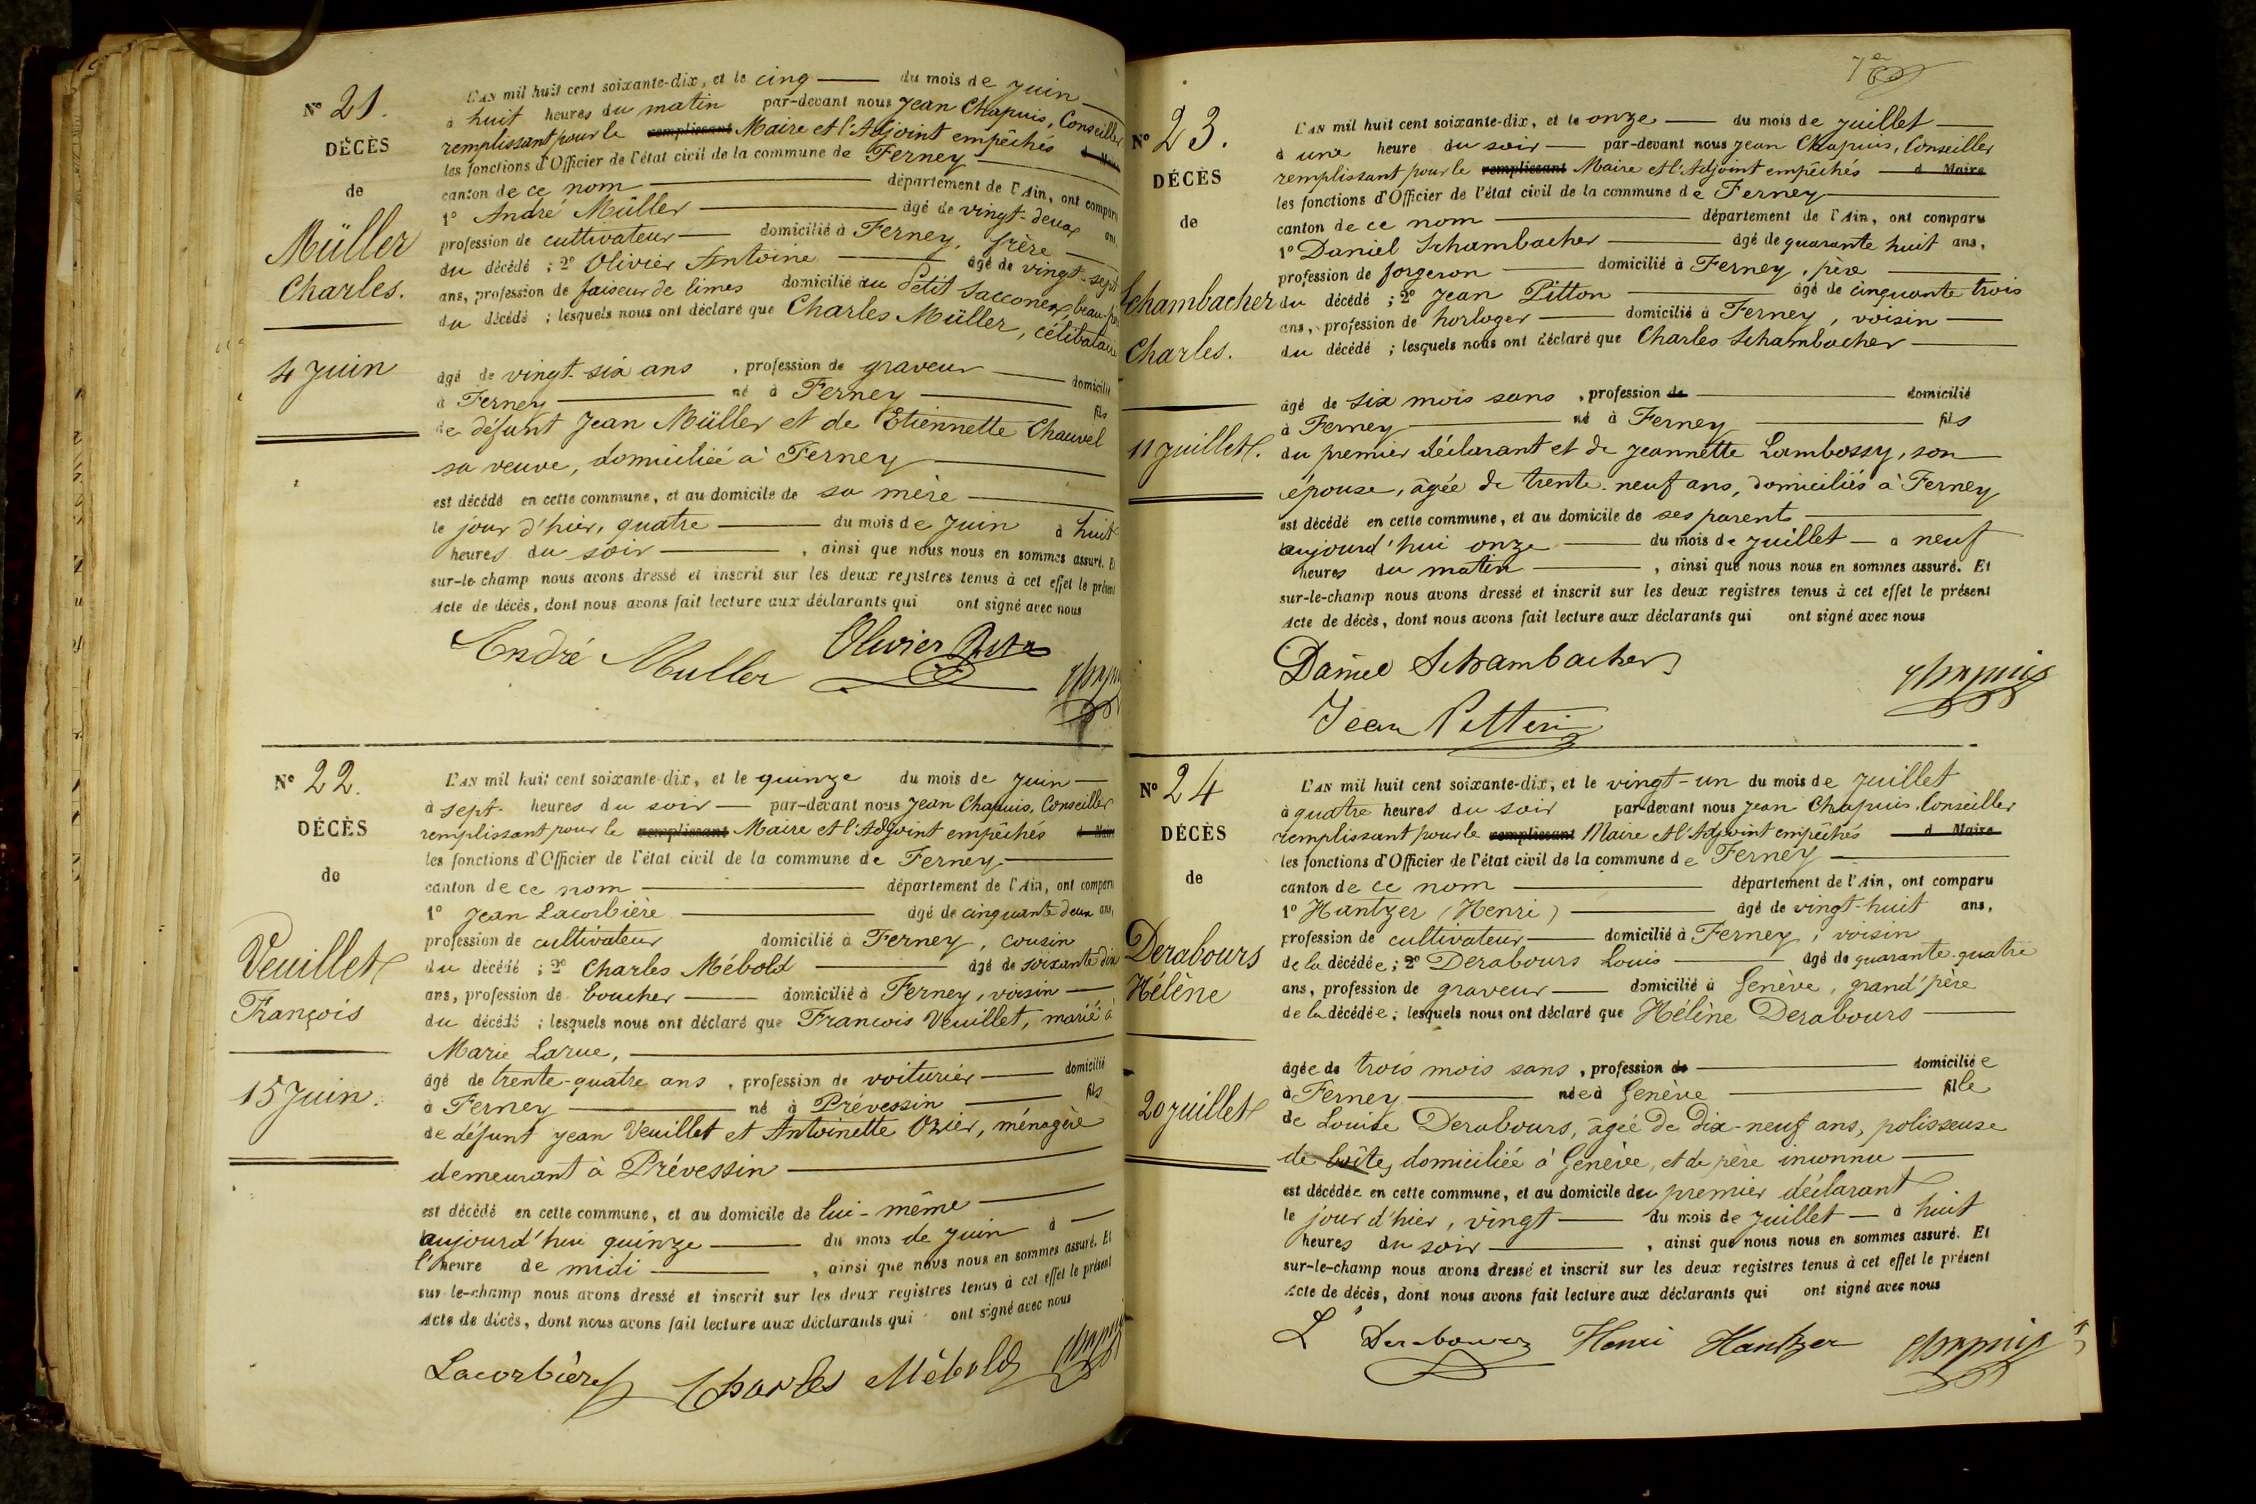 N° 21.
DÉCÈS
de
Müller
Charles.
4 Juin
L'AN mil huit cent soixante-dix, et le cinq du mois de Juin
à huit heures du matin par-devant nous Jean Chapuis, Conseiller
remplissant pour le remplissant Maire et l'Adjoint empêchés d Maire
les fonctions d'Officier de l'état civil de la commune de Ferney
canton de ce nom département de l'Ain, ont comparu
1° André Müller âgé de vingt-deux ans,
profession de cultivateur domicilié à Ferney, frère
du décédé ; 2° Olivier Antoine âgé de vingt-sept
ans, profession de faiseur de limes domicilié au Petit Sacconex, beau-frère
du décédé ; lesquels nous ont déclaré que Charles Müller, célibataire
âgé de vingt-six ans , profession de graveur domicilié
à Ferney né à Ferney fils
de défunt Jean Müller et de Etiennette Chauvel
sa veuve, domiciliée à Ferney
est décédé en cette commune, et au domicile de sa mère
le jour d'hier, quatre du mois de Juin à huit
heures du soir , ainsi que nous nous en sommes assuré. Et
sur-le-champ nous avons dressé et inscrit sur les deux registres tenus à cet effet le présent
Acte de décès, dont nous avons fait lecture aux déclarants qui ont signé avec nous
André Muller Olivier Chapuis
N° 22.
DÉCÈS
de
Veuillet
François
15 Juin.
L'AN mil huit cent soixante-dix, et le quinze du mois de Juin
à sept heures du soir par-devant nous Jean Chapuis, Conseiller
remplissant pour le remplissant Maire et l'Adjoint empêchés d Maire
les fonctions d'Officier de l'état civil de la commune de Ferney
canton de ce nom département de l'Ain, ont comparu
1° Jean Lacorbière âgé de cinquante deux ans,
profession de cultivateur domicilié à Ferney, cousin
du décédé ; 2° Charles Mébold âgé de soixante dix
ans, profession de boucher domicilié à Ferney, voisin
du décédé ; lesquels nous ont déclaré que François Veuillet, marié à
Marie Larue,
âgé de trente-quatre ans , profession de voiturier domicilié
à Ferney né à Prévessin fils
de défunt Jean Veuillet et Antoinette Ozier, ménagère
demeurant à Prévessin
est décédé en cette commune, et au domicile de lui-même
aujourd'hui quinze du mois de Juin à
l'heure de midi , ainsi que nous nous en sommes assuré. Et
sur-le-champ nous avons dressé et inscrit sur les deux registres tenus à cet effet le présent
Acte de décès, dont nous avons fait lecture aux déclarants qui ont signé avec nous
Lacorbière Charles Mébold Chapuis
N° 23.
DÉCÈS
de
Schambacher
Charles.
11 Juillet.
L'AN mil huit cent soixante-dix, et le onze du mois de Juillet
à une heure du soir par-devant nous Jean Chapuis, Conseiller
remplissant pour le remplissant Maire et l'Adjoint empêchés d Maire
les fonctions d'Officier de l'état civil de la commune de Ferney
canton de ce nom département de l'Ain, ont comparu
1° Daniel Schambacher âgé de quarante huit ans,
profession de forgeron domicilié à Ferney, père
du décédé ; 2° Jean Pitton âgé de cinquante trois
ans, profession de horloger domicilié à Ferney, voisin
du décédé ; lesquels nous ont déclaré que Charles Schambacher
âgé de six mois sans , profession de domicilié
à Ferney né à Ferney fils
du premier déclarant et de Jeannette Lambossy, son
épouse, âgée de trente-neuf ans, domiciliés à Ferney
est décédé en cette commune, et au domicile de ses parents
aujourd'hui onze du mois de Juillet à neuf
heures du matin , ainsi que nous nous en sommes assuré. Et
sur-le-champ nous avons dressé et inscrit sur les deux registres tenus à cet effet le présent
Acte de décès, dont nous avons fait lecture aux déclarants qui ont signé avec nous
Daniel Schambacher Chapuis
Jean
N° 24
DÉCÈS
de
Derabours
Hélène
20 Juillet
L'AN mil huit cent soixante-dix, et le vingt-un du mois de Juillet
à quatre heures du soir par-devant nous Jean Chapuis, Conseiller
remplissant pour le remplissant Maire et l'Adjoint empêchés d Maire
les fonctions d'Officier de l'état civil de la commune de Ferney
canton de ce nom département de l'Ain, ont comparu
1° Hantzer (Henri) âgé de vingt-huit ans,
profession de cultivateur domicilié à Ferney, voisin
de la décédée ; 2° Derabours Louis âgé de quarante-quatre
ans, profession de graveur domicilié à Genève, grand'père
de la décédée ; lesquels nous ont déclaré que Hélène Derabours
âgée de trois mois sans , profession de domiciliée
à Ferney née à Genève fille
de Louise Derabours, agée de dix-neuf ans, polisseuse
de boîtes, domiciliée à Genève, et de père inconnu
est décédée en cette commune, et au domicile du premier déclarant
le jour d'hier, vingt du mois de Juillet à huit
heures du soir , ainsi que nous nous en sommes assuré. Et
sur-le-champ nous avons dressé et inscrit sur les deux registres tenus à cet effet le présent
Acte de décès, dont nous avons fait lecture aux déclarants qui ont signé avec nous
L Derabours Henri Hantzer Chapuis